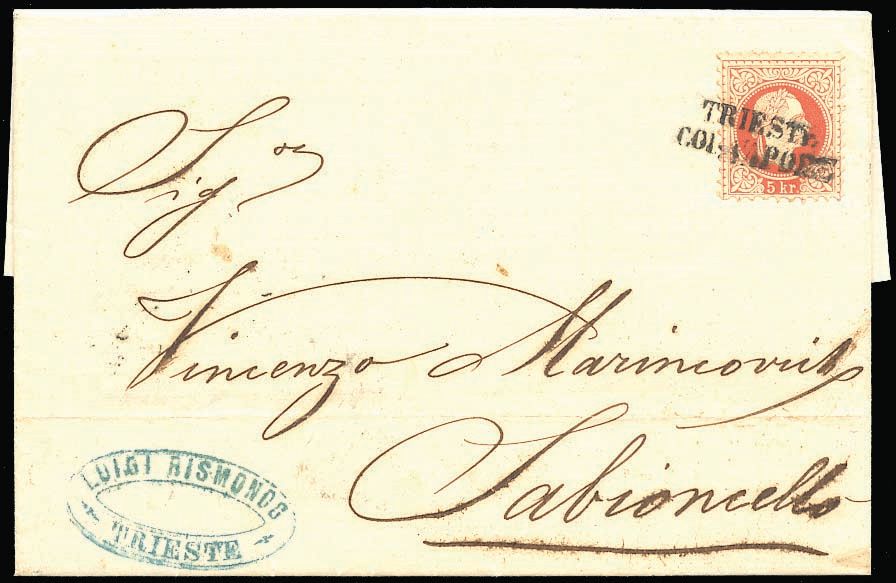 TRIESTE
COL VAPORE
5 kr.
Sigor
Vincenzo Marincovich
Sabioncello
LUIGI RISMONDO
TRIESTE